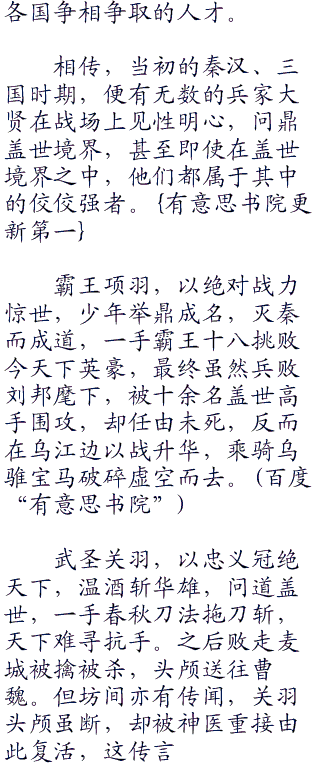 各国争相争取的人才。
相传，当初的秦汉、三
国时期，便有无数的兵家大
贤在战场上见性明心，问鼎
盖世境界，甚至即使在盖世
境界之中，他们都属于其中
的佼佼强者。{有意思书院更
新第一}
霸王项羽，以绝对战力
惊世，少年举鼎成名，灭秦
而成道，一手霸王十八挑败
今天下英豪，最终虽然兵败
刘邦麾下，被十余名盖世高
手围攻，却任由未死，反而
在乌江边以战升华，乘骑乌
骓宝马破碎虚空而去。(百度
“有意思书院”)
武圣关羽，以忠义冠绝
天下，温酒斩华雄，问道盖
世，一手春秋刀法拖刀斩，
天下难寻抗手。之后败走麦
城被擒被杀，头颅送往曹
魏。但坊间亦有传闻，关羽
头颅虽断，却被神医重接由
此复活，这传言